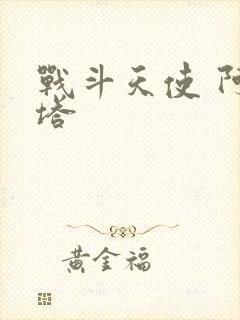 戰斗天使 阿
塔
黃金福